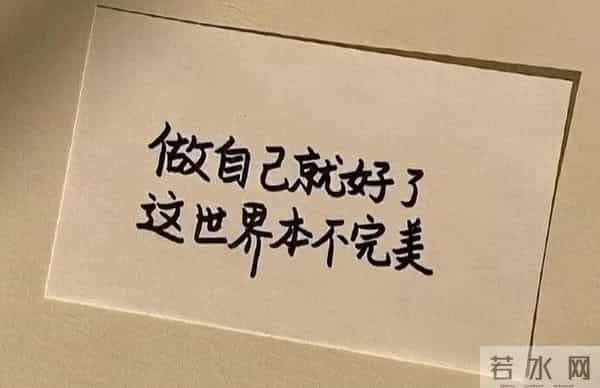 做自己就好了
这世界本不完美
若水网